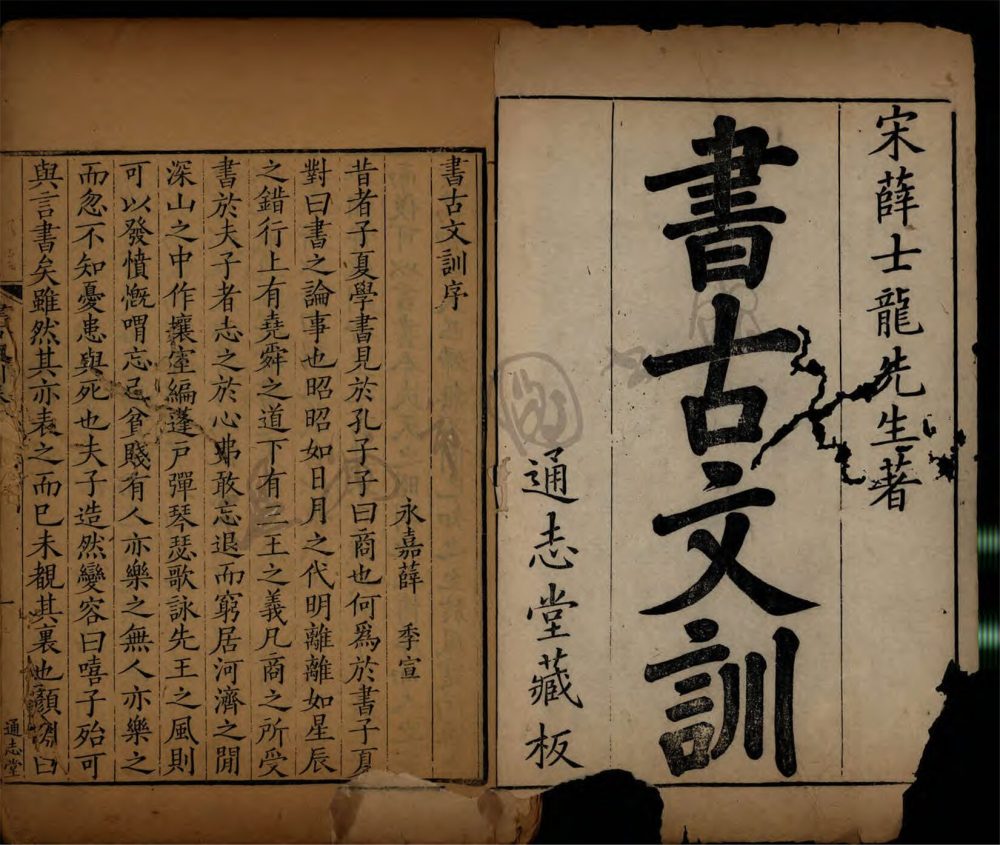 宋薛士龍先生著
書古文訓
通志堂藏板
書古文訓序
永嘉薛 季宣
昔者子夏學書見於孔子子曰商也何爲於書子夏
對曰書之論事也昭昭如日月之代明離離如星辰
之錯行上有堯舜之道下有三王之義凡商之所受
書於夫子者志之於心弗敢忘退而窮居河濟之閒
深山之中作壤室編蓬戸彈琴瑟歌詠先王之風則
可以發憤慨喟忘己貧賤有人亦樂之無人亦樂之
而忽不知憂患與死也夫子造然變容曰嘻子殆可
與言書矣雖然其亦表之而已未覩其裏也顏淵曰
通志堂